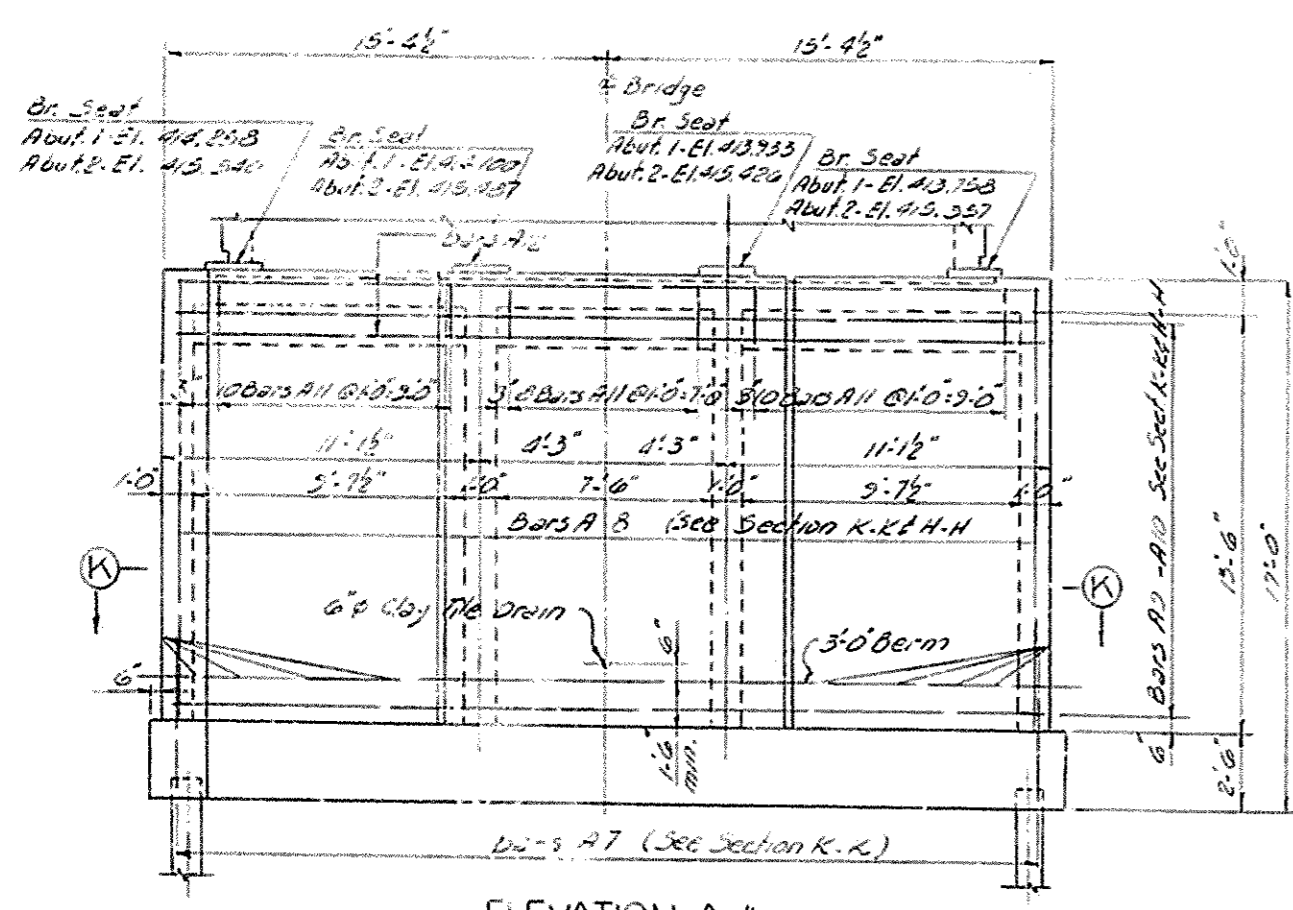 15'-4½" 15'-4½"
℄ Bridge
Br. Seat
Abut. 1-El. 414.258
Abut. 2-El. 415.540
Br. Seat
Abut. 1-El.
Abut. 2-El. 415.457
Br. Seat
Abut. 1-El. 413.933
Abut. 2-El. 415.426
Br. Seat
Abut. 1-El. 413.758
Abut. 2-El. 415.357
1'-0"
10 Bars A11 @1'-0"=9'-0" 3" 8 Bars A11 @1'-0"=7'-0" 3" 10 Bars A11 @1'-0"=9'-0"
11'-1½" 4'-3" 4'-3" 11'-1½"
1'-0" 9'-7½" 1'-0" 7'-6" 1'-0" 9'-7½" 1'-0"
Bars A8 (See Section K-K & H-H
K K
6"φ Clay Tile Drain 6" 3'-0" Berm
6"
1'-6" min.
Bars A9-A10 See Sect K-K & H-H
13'-6"
17'-0"
6"
2'-6"
A7 (See Section K-K)
ELEVATION